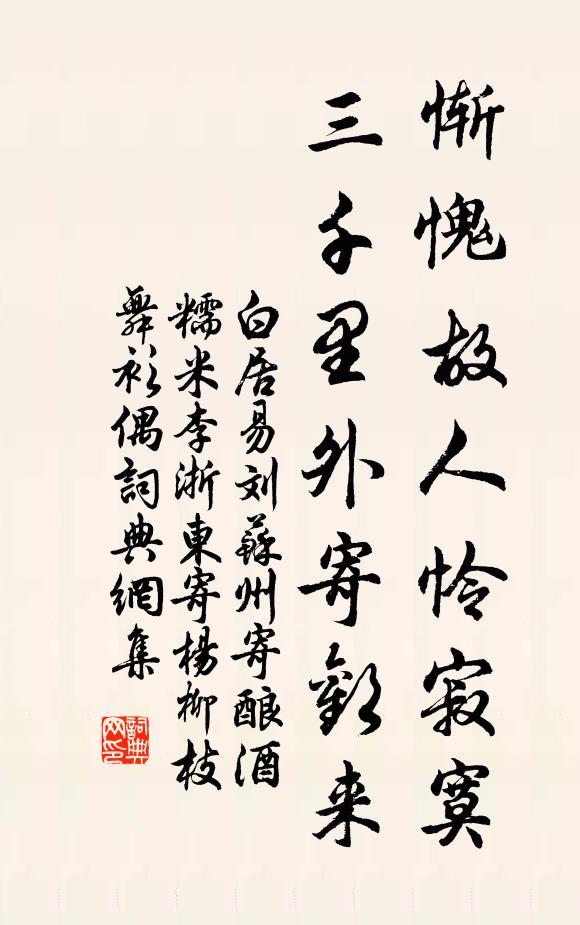 惭愧故人怜寂寞
三千里外寄歡来
白居易刘蘇州寄酿酒
糯米李浙東寄楊柳枝
舞衫偶詞典網集
詞典
网印